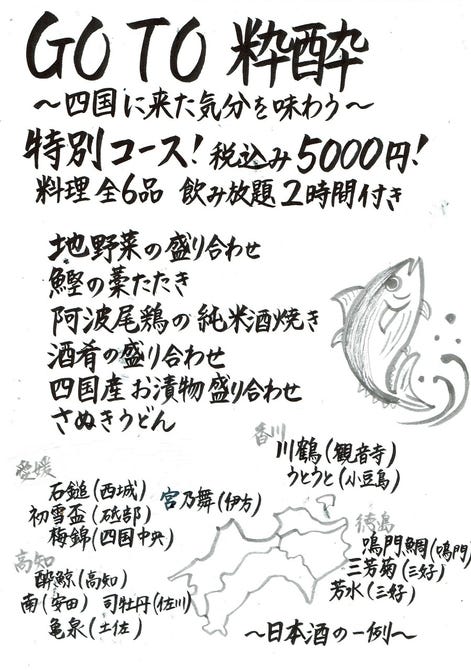 GO TO 粋酔
～四国に来た気分を味わう～
特別コース！税込み5000円！
料理 全6品 飲み放題2時間付き
地野菜の盛り合わせ
鰹の藁たたき
阿波尾鶏の純米酒焼き
酒肴の盛り合わせ
四国産お漬物盛り合わせ
さぬきうどん
香川
川鶴(観音寺)
うとうと(小豆島)
愛媛
石鎚(西城)
宮乃舞(伊方)
初雪盃(砥部)
梅錦(四国中央)
徳島
鳴門鯛(鳴門)
三芳菊(三好)
芳水(三好)
高知
酔鯨(高知)
南(安田) 司牡丹(佐川)
亀泉(土佐)
～日本酒の一例～